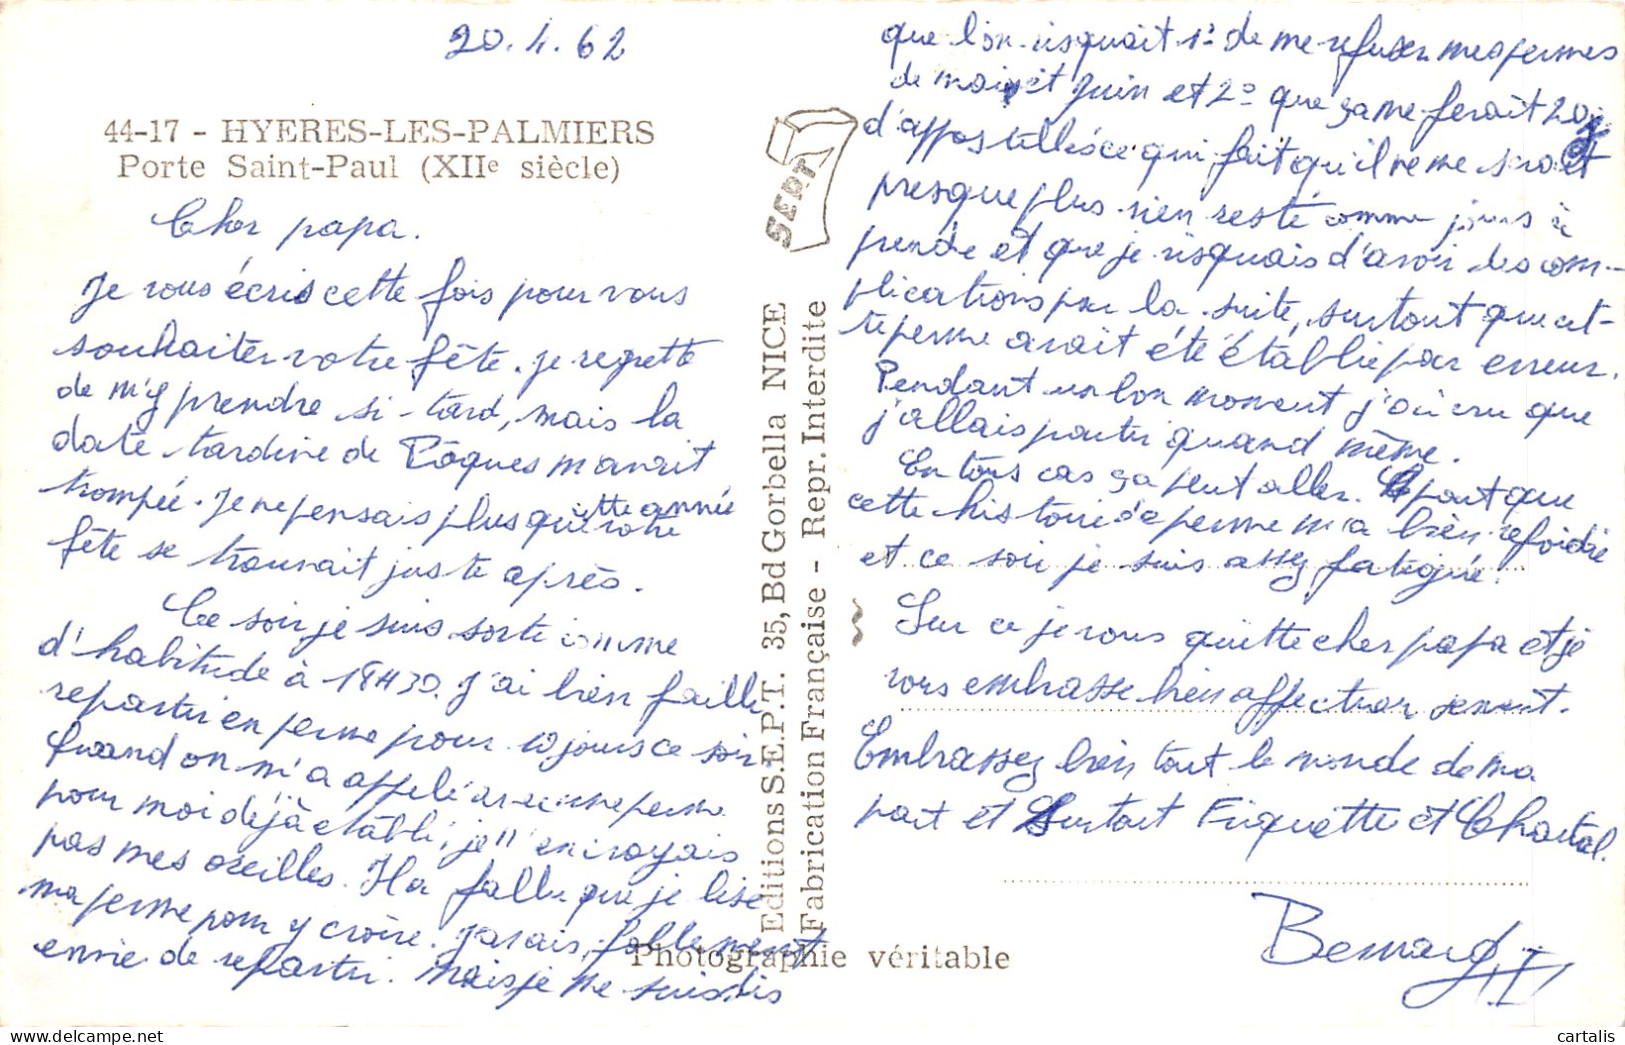 20.4.62
44-17 - HYERES-LES-PALMIERS
Porte Saint-Paul (XIIe siècle)
Cher papa.
Je vous écris cette fois pour vous
souhaiter votre fête. je regrette
de m'y prendre si tard, mais la
date tardive de Pâques m'avait
trompée. Je ne pensais plus que cette année votre
fête se trouvait juste après.
Ce soir je suis sorti comme
d'habitude à 18H30. J'ai bien failli
repartir en perme pour 10 jours ce soir
Quand on m'a appelé avec une perme
pour moi déjà établi, je n'en croyais
pas mes oreilles. Il a fallu que je lise
ma perme pour y croire. J'avais follement
envie de repartir. Mais je me suis dis
SEPT
Editions S.E.P.T. 35, Bd Gorbella NICE
Fabrication Française - Repr. Interdite
Photographie véritable
que l'on risquait 1° de me refuser mes permes
de mai et Juin et 2° que ça me ferait 20j
d'appostillés ce qui fait qu'il ne me serait
presque plus rien resté comme jours à
prendre et que je risquais d'avoir des com-
plications par la suite, surtout que cet-
te perme avait été établie par erreur.
Pendant un bon moment j'ai cru que
j'allais partir quand même.
En tous cas ça peut aller. à part que
cette histoire de perme m'a bien refoidie
et ce soir je suis assez fatigué.
Sur ce je vous quitte cher papa et je
vous embrasse bien affectueusement.
Embrassez bien tout le monde de ma
part et Surtout Friquette et Chantal.
Bernard
cartalis